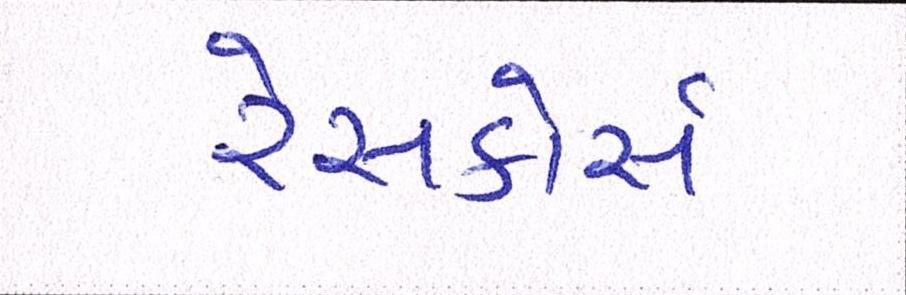 રેસકોર્સ